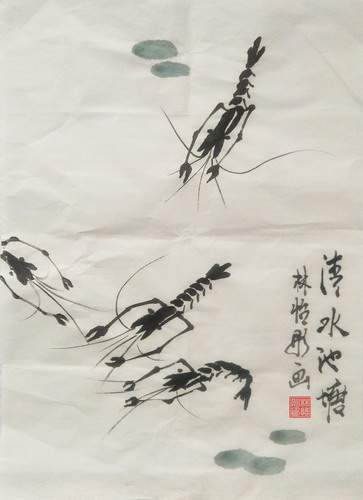 清水池塘
林怡彤画